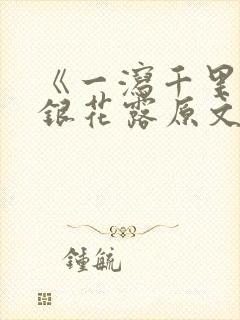 《一瀉千里
銀花露原文
鍾毓